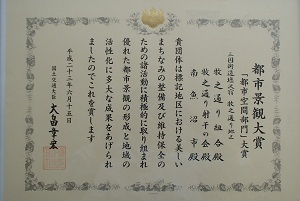 都市景観大賞
「都市空間部門」大賞
三国街道塩沢宿 牧之通り地区
牧之通り組合殿
牧之通り射干の会殿
南魚沼市殿
貴団体は標記地区における美しい
まちなみの整備及び維持保全の
ための諸活動に積極的に取り組まれ
優れた都市景観の形成と地域の
活性化に多大な成果をあげられ
ましたのでこれを賞します
平成二十三年六月十五日
国土交通大臣
大畠章宏